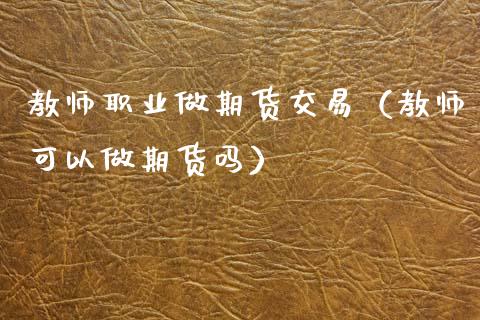 教师职业做期货交易（教师
可以做期货吗）